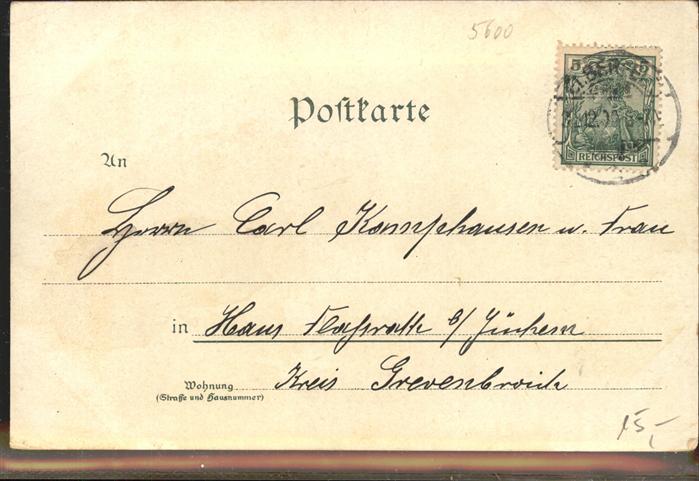 5600
5 5
REICHSPOST
Postkarte
An
Herrn Carl Kamphausen u. Frau
in Haus Flaßratte b/ Jüchen
Wohnung Kreis Grevenbroich
(Straße und Hausnummer)
15,-